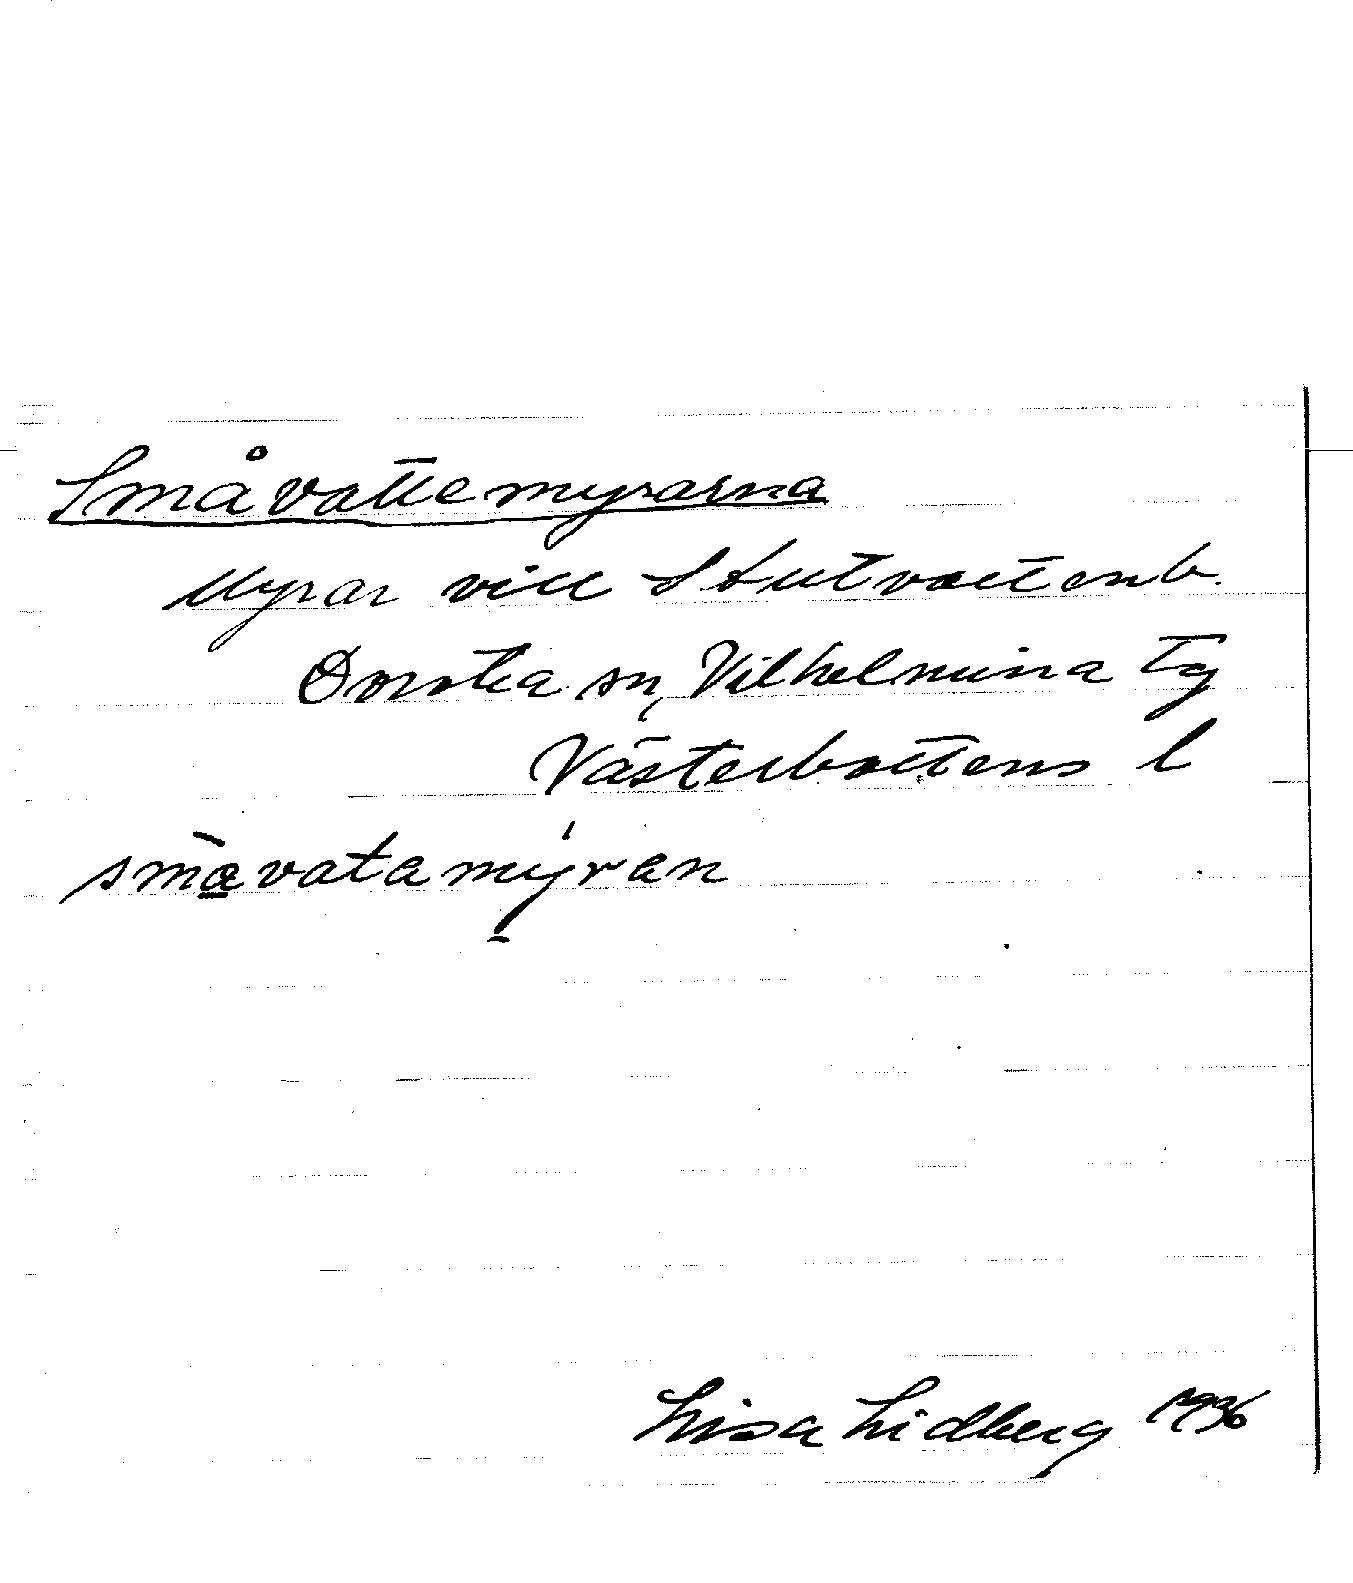 Småvattemyrarna
Myrar vid Stutvattenb.
Dorotea sn, Vilhelmina tg
Västerbottens l
småvatamyran
Lisa Lidberg 1936